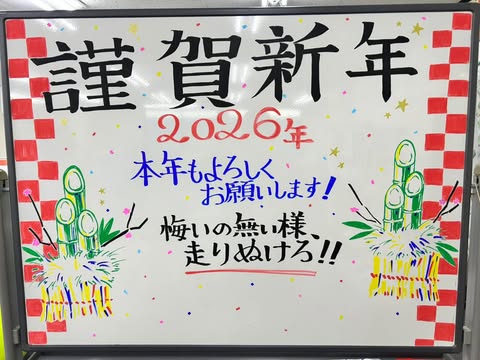 謹賀新年
2026年
本年もよろしく
お願いします!
悔いの無い様、
走りぬけろ!!